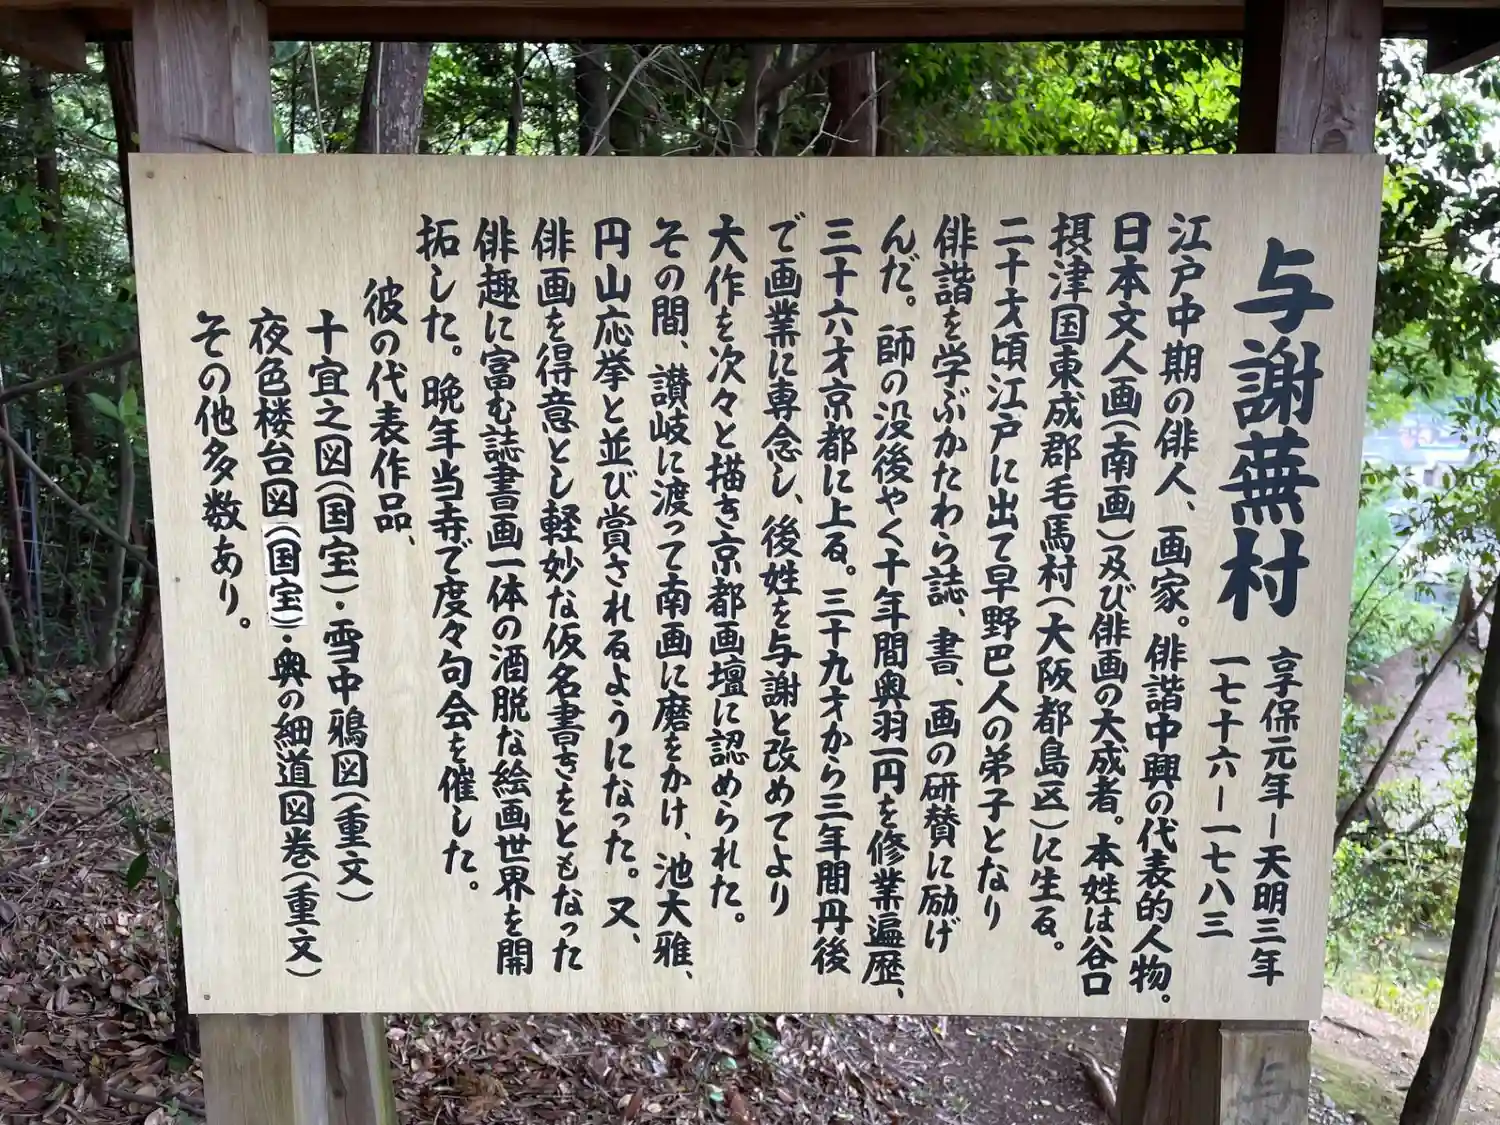 与謝蕪村
享保元年ー天明三年
一七十六ー一七八三
江戸中期の俳人、画家。俳諧中興の代表的人物。
日本文人画(南画)及び俳画の大成者。本姓は谷口
摂津国東成郡毛馬村(大阪都島区)に生る。
二十才頃江戸に出て早野巴人の弟子となり
俳諧を学ぶかたわら誌、書、画の研賛に励げ
んだ。師の没後やく十年間奥羽一円を修業遍歴、
三十六才京都に上る。三十九才から三年間丹後
で画業に専念し、後姓を与謝と改めてより
大作を次々と描き京都画壇に認められた。
その間、讃岐に渡って南画に磨をかけ、池大雅、
円山応挙と並び賞されるようになった。又、
俳画を得意とし軽妙な仮名書きをともなった
俳趣に富む誌書画一体の酒脱な絵画世界を開
拓した。晩年当寺で度々句会を催した。
彼の代表作品、
十宜之図(国宝)・雪中鴉図(重文)
夜色楼台図(国宝)・奥の細道図巻(重文)
その他多数あり。
与